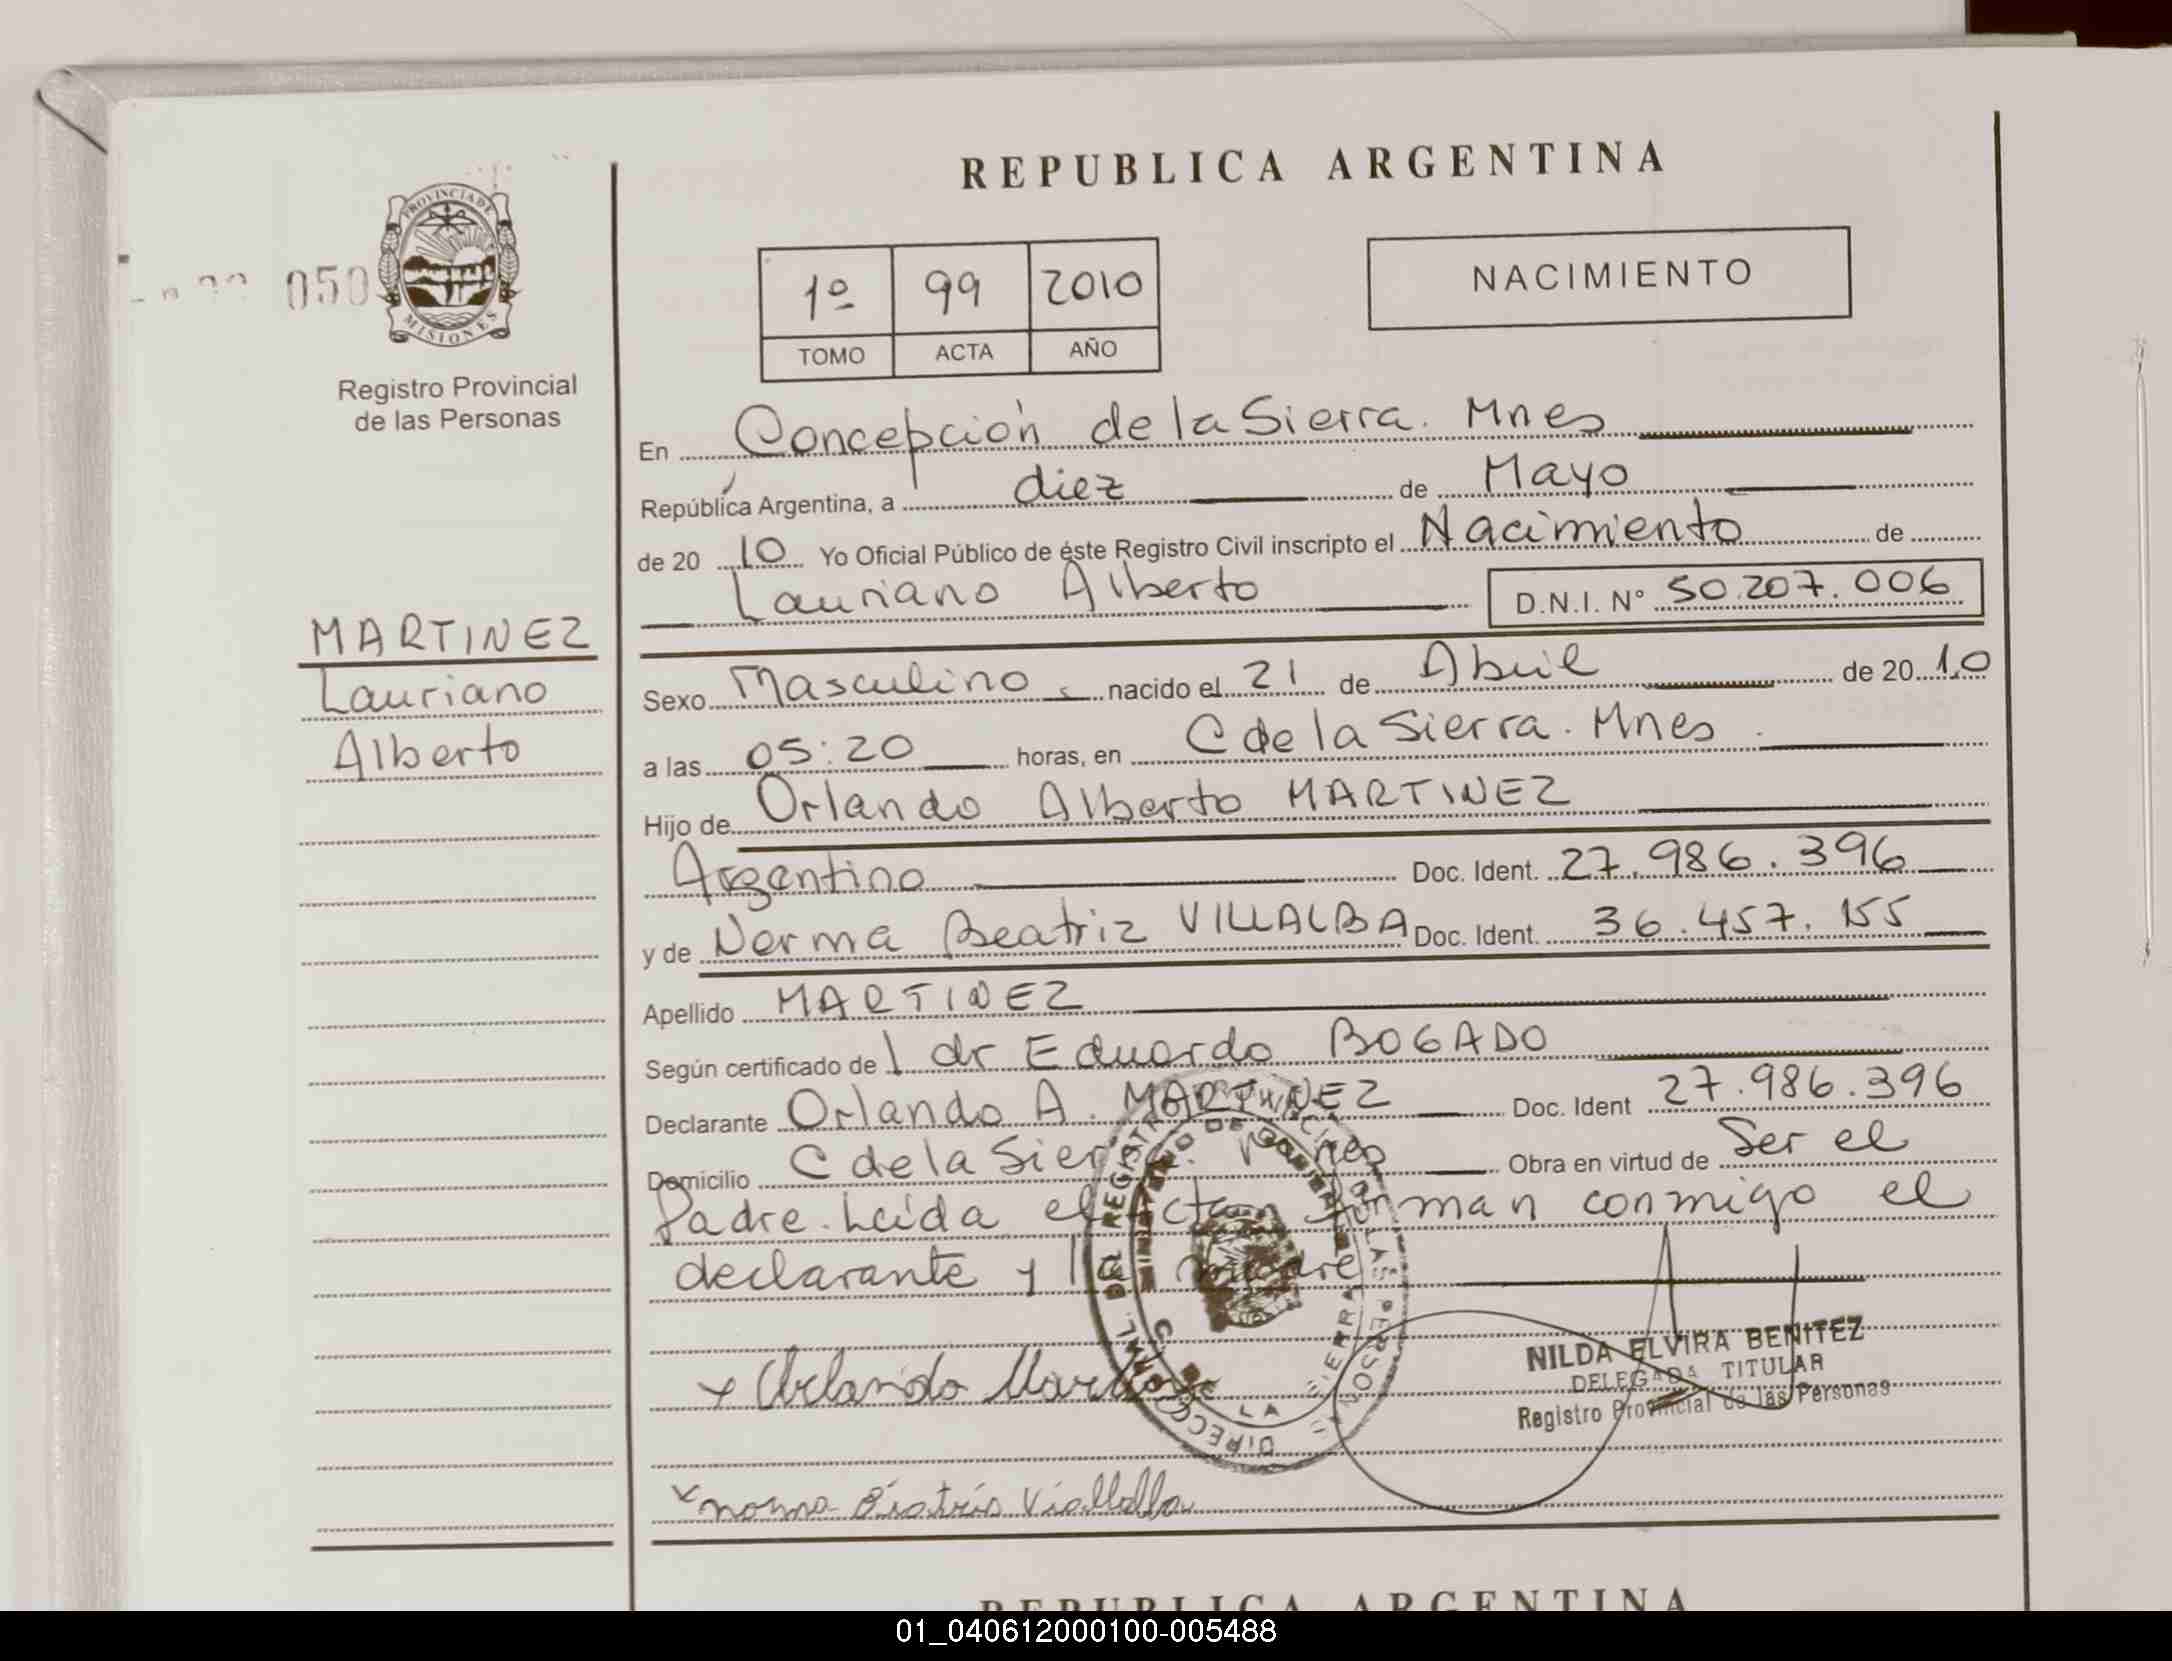 REPUBLICA ARGENTINA
PROVINCIA DE
MISIONES
050
Registro Provincial
de las Personas
1º 99 2010
TOMO ACTA AÑO
NACIMIENTO
En Concepción de la Sierra. Mnes
República Argentina, a diez de Mayo
de 20 10 Yo Oficial Público de éste Registro Civil inscripto el Nacimiento de
Lauriano Alberto D.N.I. Nº 50.207.006
MARTINEZ
Lauriano
Alberto
Sexo Masculino nacido el 21 de Abril de 20 10
a las 05:20 horas, en C de la Sierra. Mnes.
Hijo de Orlando Alberto MARTINEZ
Argentino Doc. Ident. 27.986.396
y de Norma Beatriz VILLALBA Doc. Ident. 36.457.155
Apellido MARTINEZ
Según certificado de l dr Eduardo BOGADO
Declarante Orlando A. MARTINEZ Doc. Ident 27.986.396
Domicilio C de la Sierra. Mnes Obra en virtud de Ser el
Padre. Leída el acta firman conmigo el
declarante y la madre
NILDA ELVIRA BENITEZ
DELEGADA TITULAR
Registro Provincial de las Personas
x Orlando
x norma
REPUBLICA ARGENTINA
01_040612000100-005488